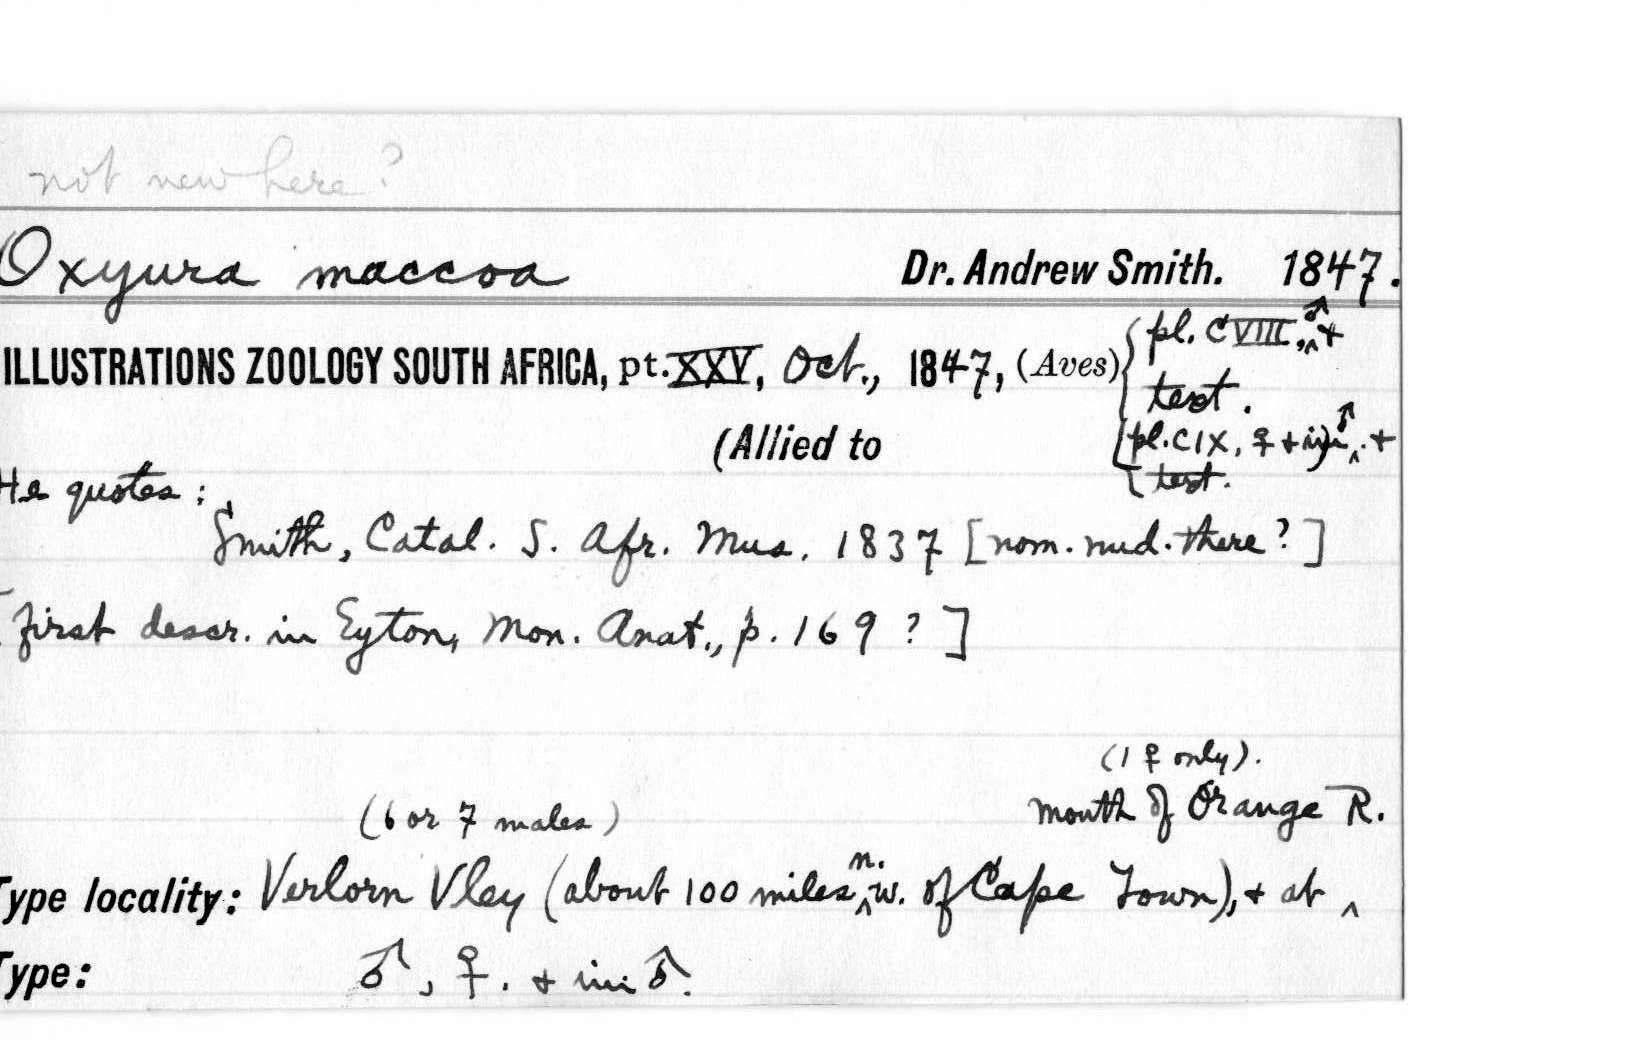 not new here?
Oxyura maccoa Dr. Andrew Smith. 1847.
ILLUSTRATIONS ZOOLOGY SOUTH AFRICA, pt. XXV, Oct., 1847, (Aves) { pl. CVIII, ♂ +
text.
(Allied to [pl. CIX, ♀ + im ♂. +
text.
He quotes:
Smith, Catal. S. Afr. Mus. 1837 [nom. nud. there?]
[first descr. in Eyton, Mon. Anat., p. 169 ?]
(1 ♀ only).
(6 or 7 males) mouth of Orange R.
Type locality: Verlorn Vley (about 100 miles n. w. of Cape Town), + at ^
Type: ♂, ♀. + im ♂.